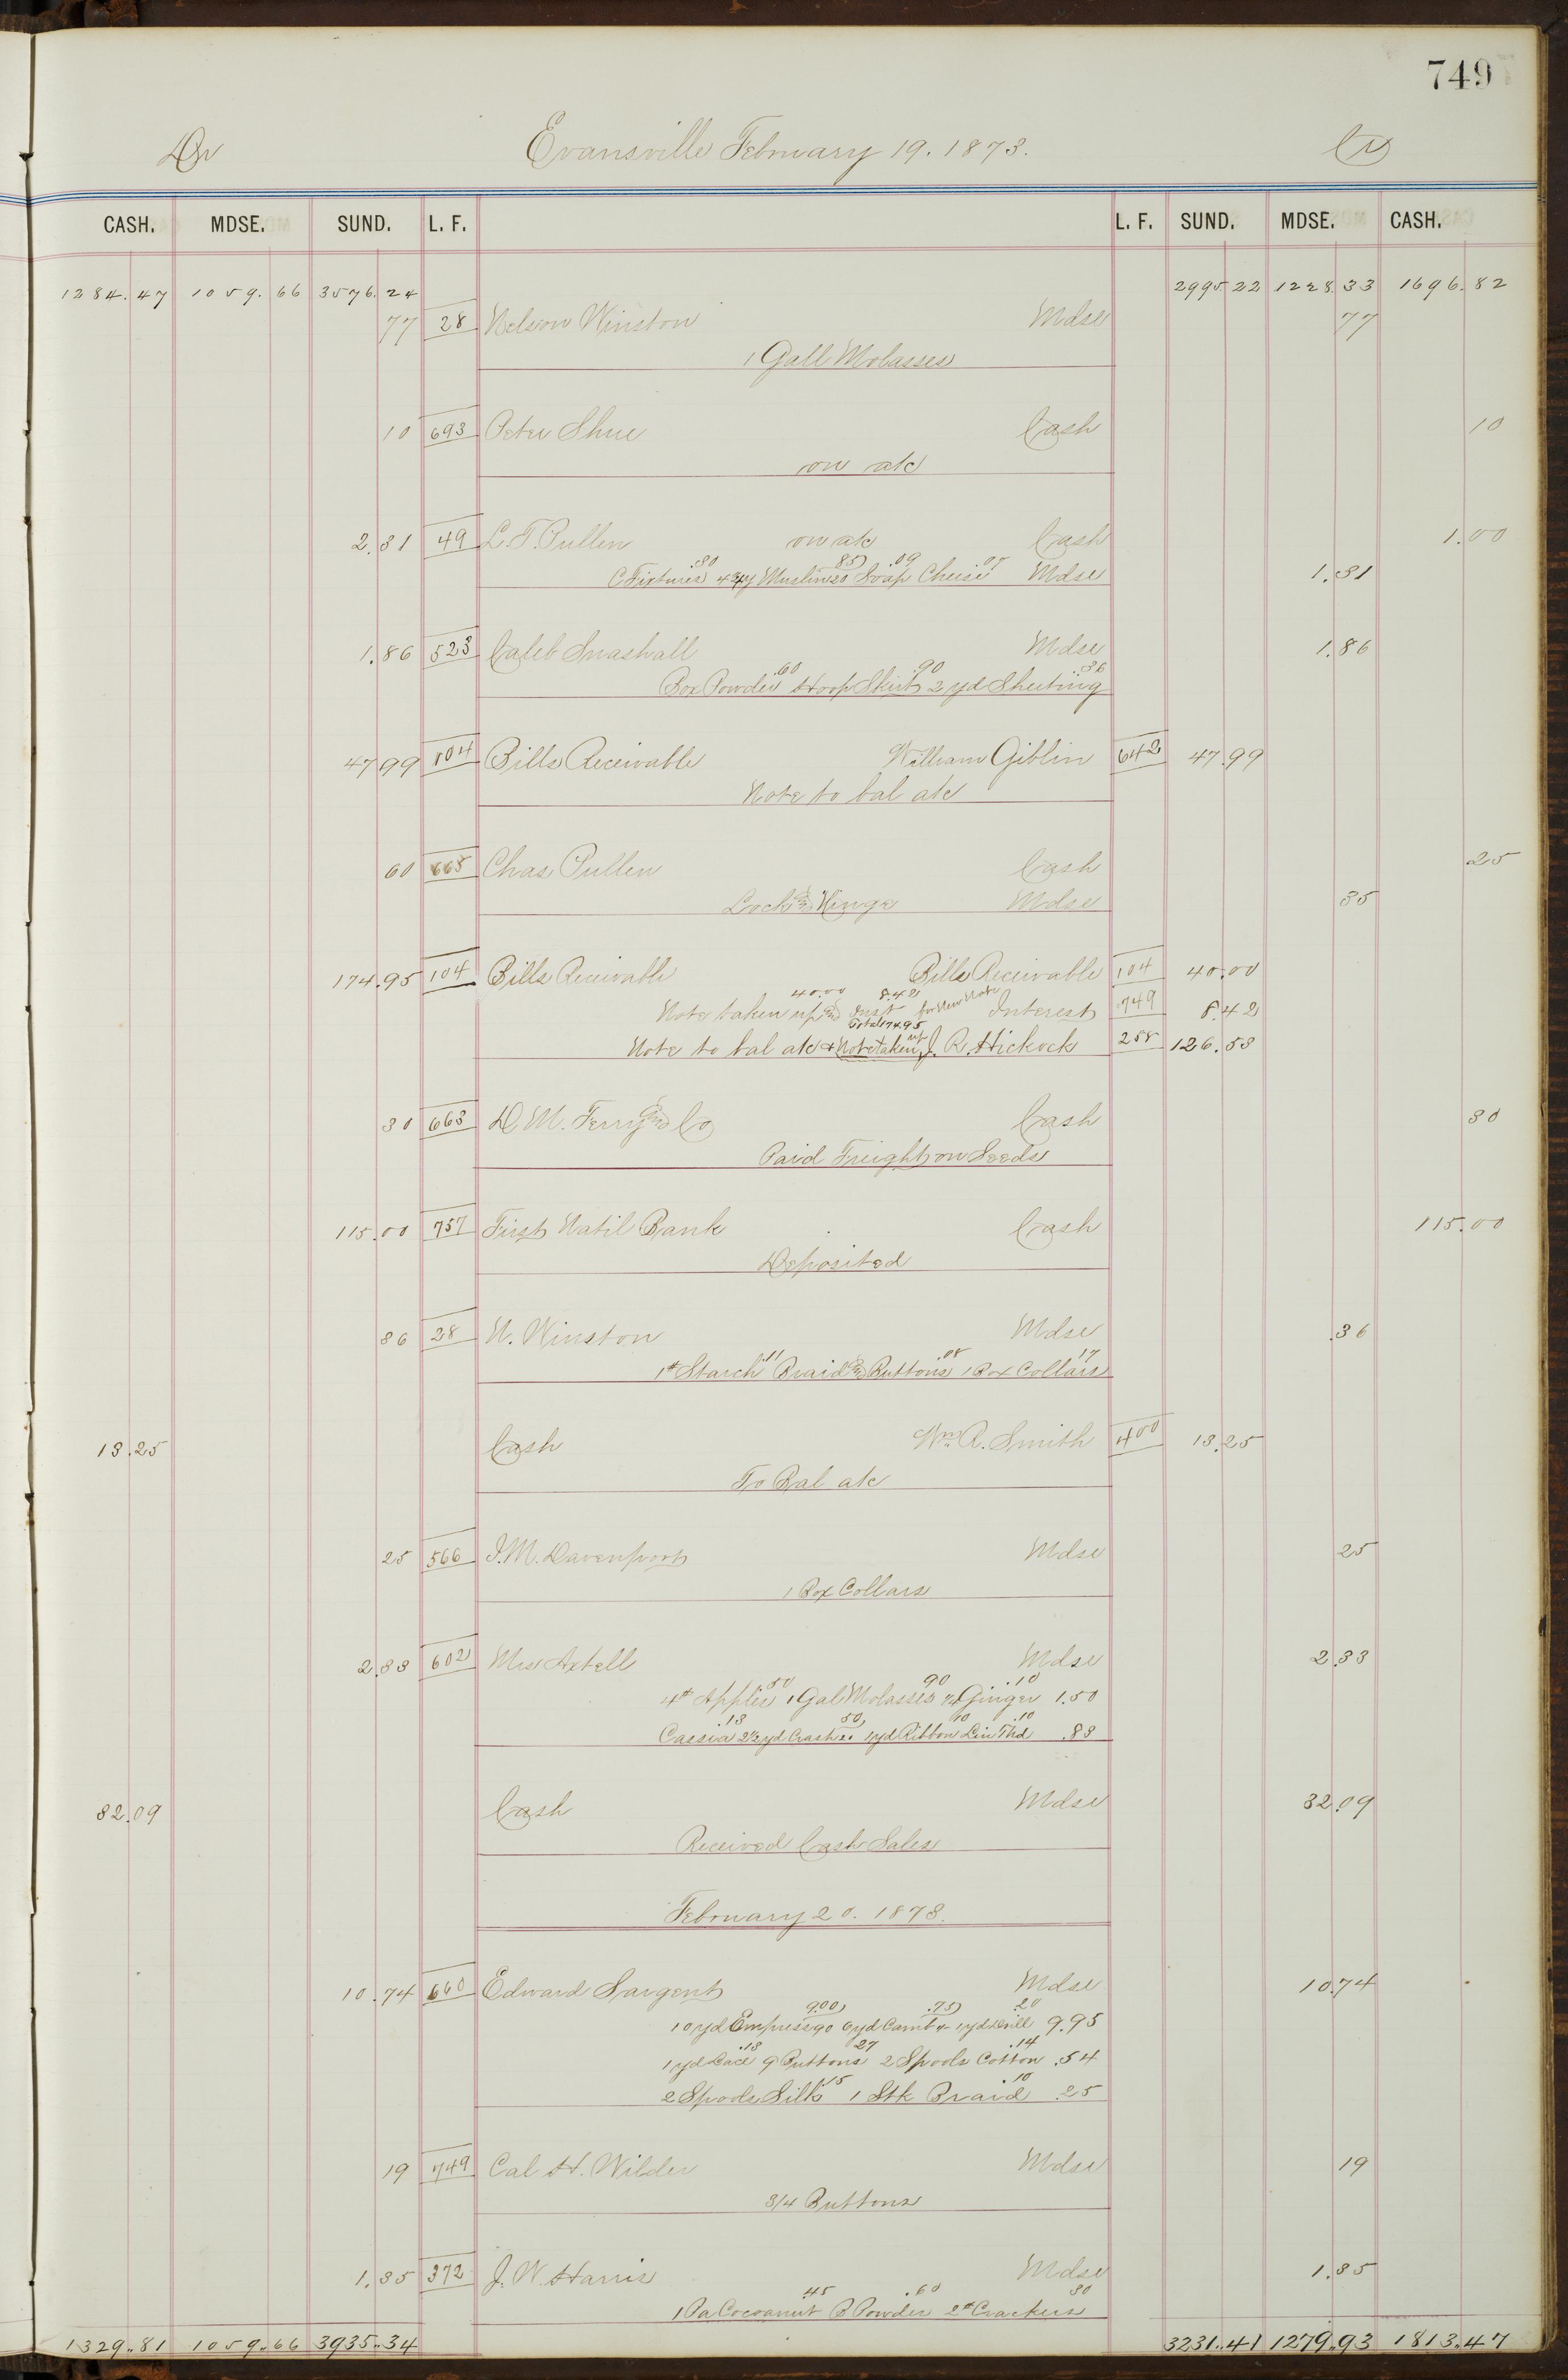 749
Dr Evansville February 19. 1873. Cr
CASH. MDSE. SUND. L. F. L. F. SUND. MDSE. CASH.
1284.47 1059.66 3576.24 2995.22 1228.33 1696.82
77 28 Nelson Winston Mdse 77
1 Gall Molasses
10 693 Peter Shue Cash 10
on a/c
2.31 49 L. T. Pullen on a/c Cash 1.00
.30 85 .09 07
C Fixtures 4 1/4 y Muslin 20 Soap Cheese Mdse 1.31
1.86 523 Caleb Snashall Mdse 1.86
.60 .90 .36
Box Powder Hoop Skirt 2 yd Sheeting
47.99 104 Bills Receivable William Giblin 642 47.99
Note to bal a/c
60 665 Chas Pullen Cash 25
Lock & Hinge Mdse 35
174.95 104 Bills Receivable Bills Receivable 104 40.00
40.00 8.42
Note taken up & Inst for New Note Interest 749 8.42
Total 174.95
Note to bal a/c & Note taken up J. R. Hickock 258 126.53
30 663 D. M. Ferry & Co Cash 30
Paid Freight on Seeds
115.00 757 First Natil Bank Cash 115.00
Deposited
36 28 N. Winston Mdse .36
.11 .08 17
1# Starch Braid & Buttons 1 Box Collars
13.25 Cash Wm A. Smith 400 13.25
To Bal a/c
25 566 J. M. Davenport Mdse 25
1 Box Collars
2.33 602 Mrs Axtell Mdse 2.33
50 90 .10
4# Apples 1 Gal Molasses 1/4 Ginger 1.50
.13 50 10 .10
Cassia 2 1/2 yd Crash 20 1 yd Ribbon Lin Thd .83
32.09 Cash Mdse 32.09
Received Cash Sales
February 20. 1873.
10.74 660 Edward Sargent Mdse 10.74
9.00 .75 20
10 yd Empress 90 6 yd Camb 1 yd Drill 9.95
.13 27 .14
1 yd Lace 9 Buttons 2 Spools Cotton .54
.15 10
2 Spools Silk 1 Stk Braid .25
19 749 Cal H. Wilder Mdse 19
3/4 Buttons
1.35 372 J. W. Harris Mdse 1.35
45 .60 30
1 Pa Cocoanut B Powder 2# Crackers
1329.81 1059.66 3935.34 3231.41 1279.93 1813.47